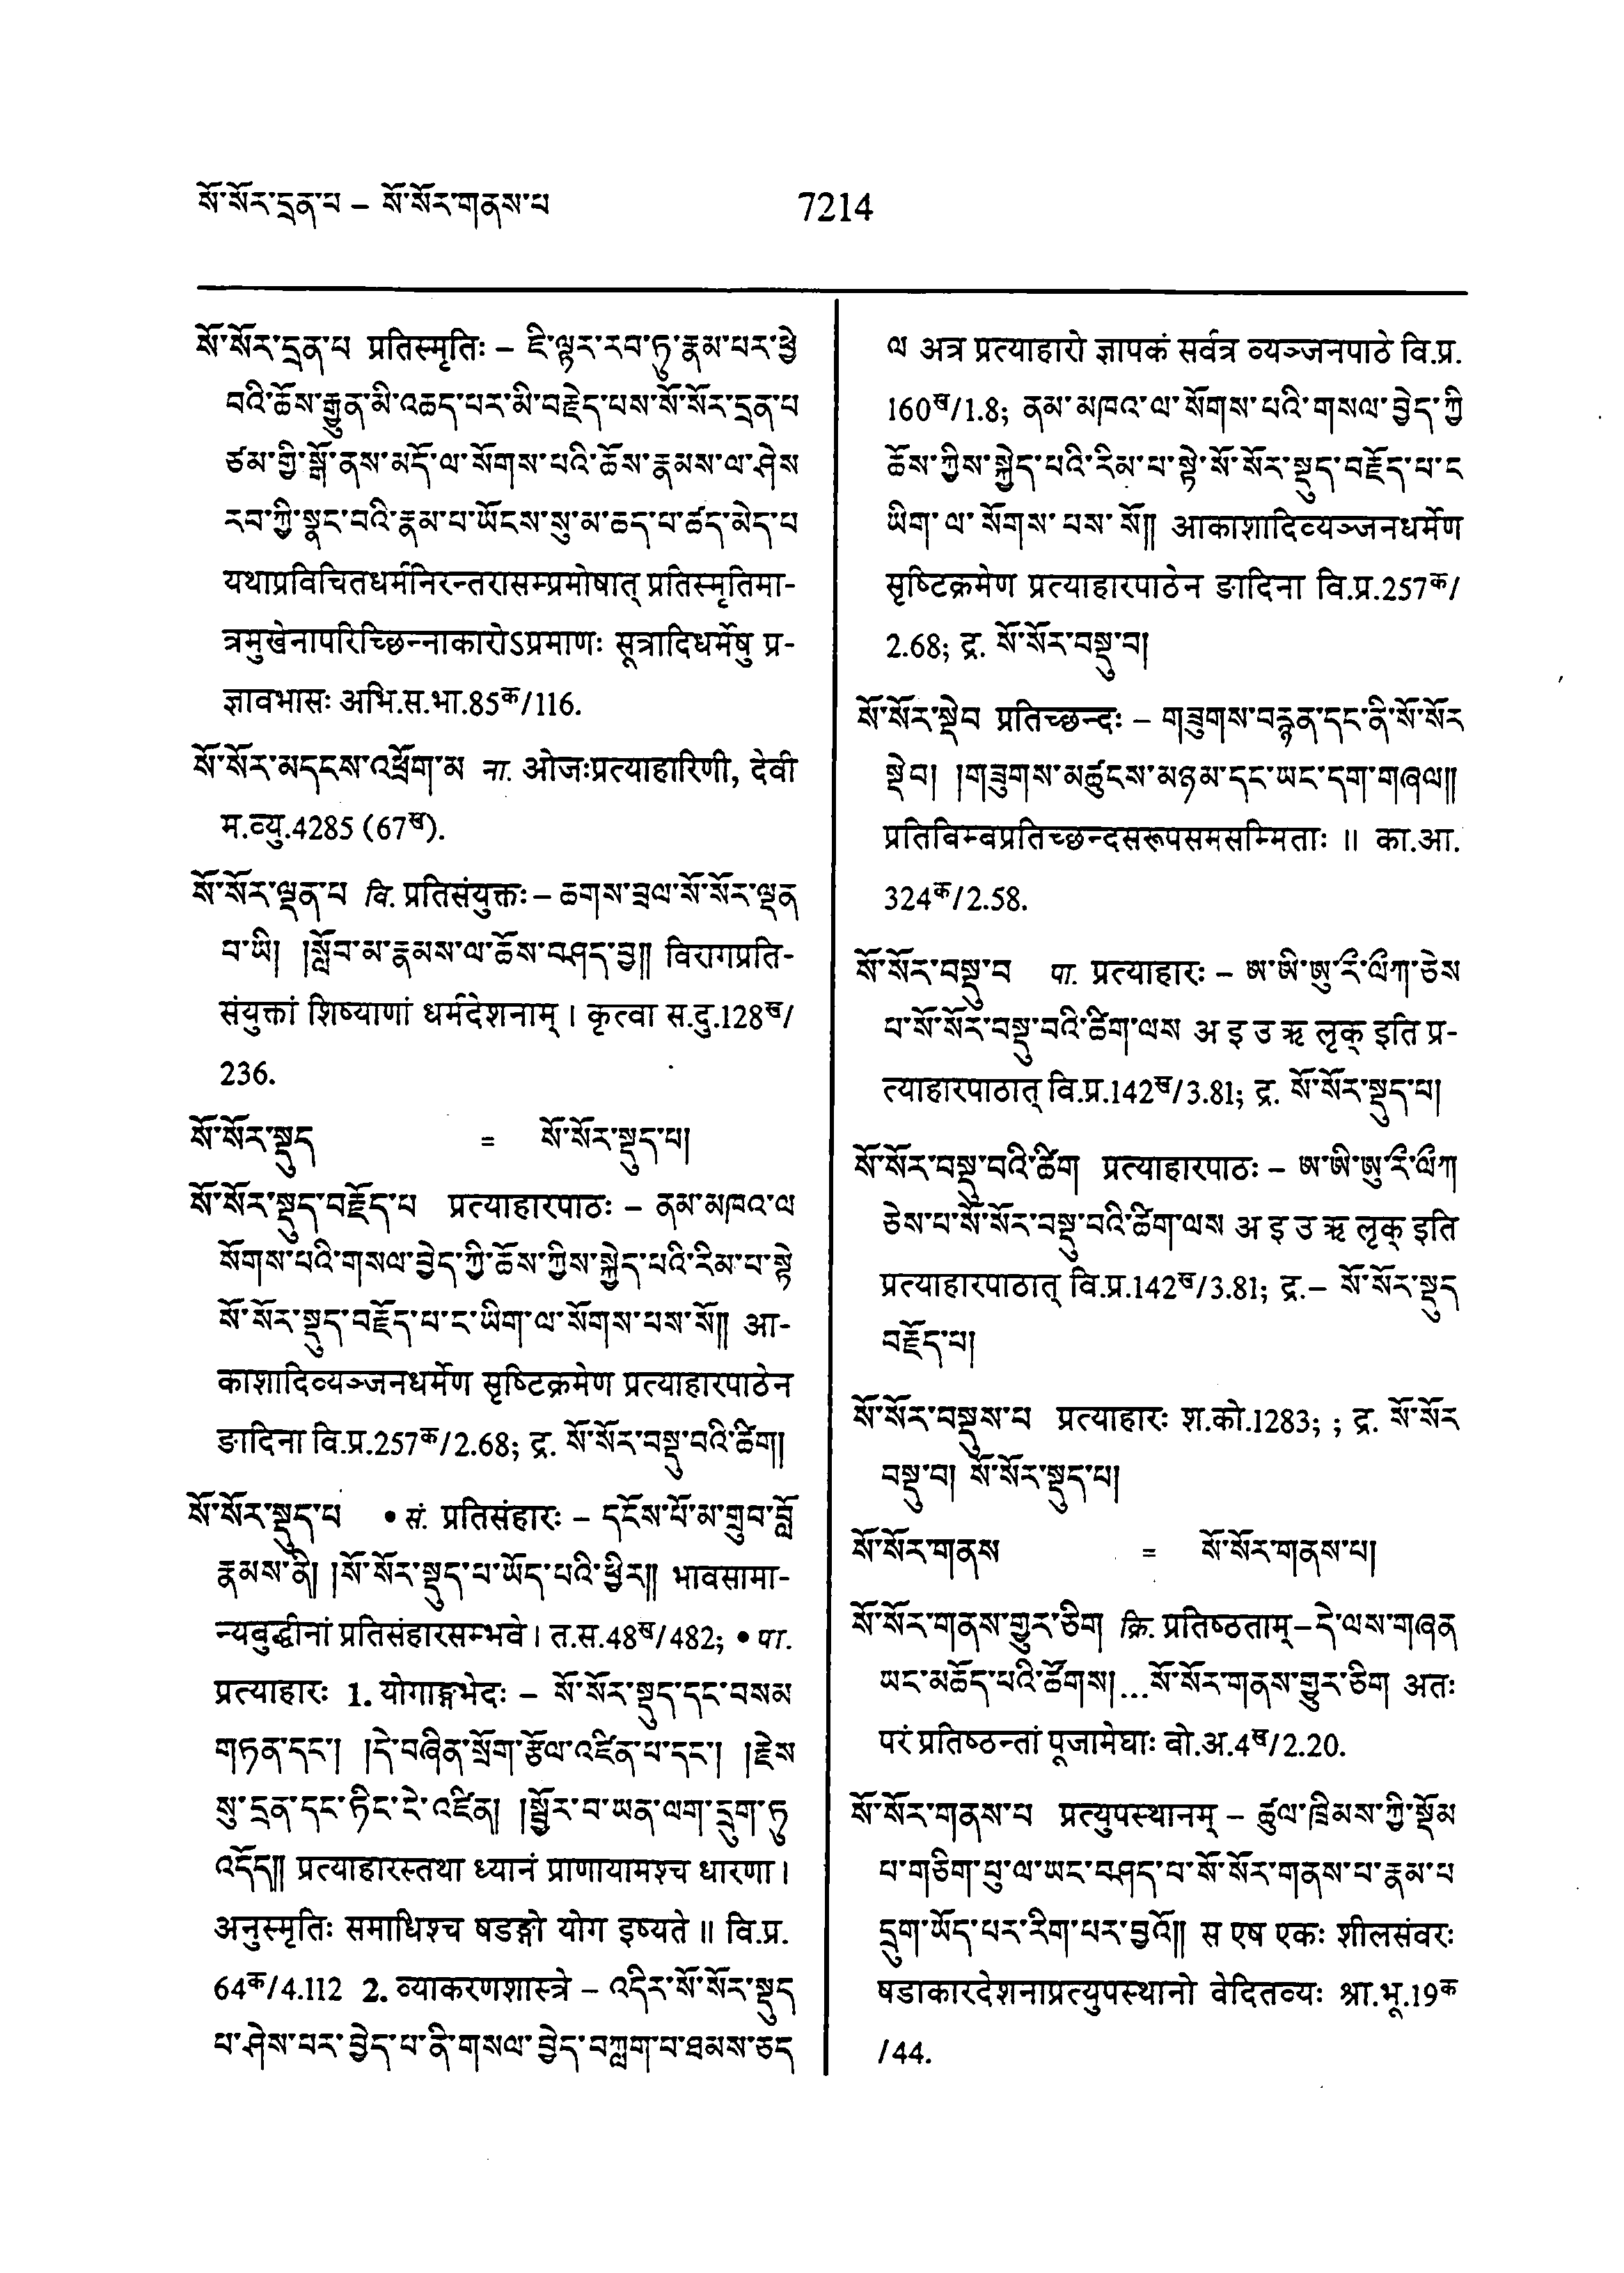 སོ་སོར་དྲན་པ – སོ་སོར་གནས་པ
7214
སོ་སོར་དྲན་པ प्रतिस्मृतिः – ཇི་ལྟར་རབ་ཏུ་རྣམ་པར་ཕྱེ
བའི་ཆོས་རྒྱུན་མི་འཆད་པར་མི་བརྗེད་པས་སོ་སོར་དྲན་པ
ཙམ་གྱི་སྒོ་ནས་མདོ་ལ་སོགས་པའི་ཆོས་རྣམས་ལ་ཤེས
རབ་ཀྱི་སྣང་བའི་རྣམ་པ་ཡོངས་སུ་མ་ཆད་པ་ཚད་མེད་པ
यथाप्रविचितधर्मनिरन्तरासम्प्रमोषात् प्रतिस्मृतिमा-
त्रमुखेनापरिच्छिन्नाकारोऽप्रमाणः सूत्रादिधर्मेषु प्र-
ज्ञावभासः अभि.स.भा.85क/116.
སོ་སོར་མདངས་འཕྲོག་མ ना. ओजःप्रत्याहारिणी, देवी
म.व्यु.4285 (67ख).
སོ་སོར་ལྡན་པ वि. प्रतिसंयुक्तः – ཆགས་བྲལ་སོ་སོར་ལྡན
པ་ཡི། །སློབ་མ་རྣམས་ལ་ཆོས་བཤད་བྱ།། विरागप्रति-
संयुक्तां शिष्याणां धर्मदेशनाम् । कृत्वा स.दु.128ख/
236.
སོ་སོར་སྡུད = སོ་སོར་སྡུད་པ།
སོ་སོར་སྡུད་བརྗོད་པ प्रत्याहारपाठः – ནམ་མཁའ་ལ
སོགས་པའི་གསལ་བྱེད་ཀྱི་ཆོས་ཀྱིས་སྐྱེད་པའི་རིམ་པ་སྟེ
སོ་སོར་སྡུད་བརྗོད་པ་ང་ཡིག་ལ་སོགས་པས་སོ།། आ-
काशादिव्यञ्जनधर्मेण सृष्टिक्रमेण प्रत्याहारपाठेन
ङादिना वि.प्र.257क/2.68; द्र. སོ་སོར་བསྡུ་བའི་ཚིག།
སོ་སོར་སྡུད་པ • सं. प्रतिसंहारः – དངོས་པོ་མ་གྲུབ་བློ
རྣམས་ནི། །སོ་སོར་སྡུད་པ་ཡོད་པའི་ཕྱིར།། भावसामा-
न्यबुद्धीनां प्रतिसंहारसम्भवे । त.स.48ख/482; • पा.
प्रत्याहारः 1. योगाङ्गभेदः – སོ་སོར་སྡུད་དང་བསམ
གཏན་དང་། །དེ་བཞིན་སྲོག་རྩོལ་འཛིན་པ་དང་། །རྗེས
སུ་དྲན་དང་ཏིང་ངེ་འཛིན། །སྦྱོར་བ་ཡན་ལག་དྲུག་ཏུ
འདོད།། प्रत्याहारस्तथा ध्यानं प्राणायामश्च धारणा ।
अनुस्मृतिः समाधिश्च षडङ्गो योग इष्यते ॥ वि.प्र.
64क/4.112 2. व्याकरणशास्त्रे – འདིར་སོ་སོར་སྡུད
པ་ཤེས་པར་བྱེད་པ་ནི་གསལ་བྱེད་བཀླག་པ་ཐམས་ཅད
ལ अत्र प्रत्याहारो ज्ञापकं सर्वत्र व्यञ्जनपाठे वि.प्र.
160ख/1.8; ནམ་མཁའ་ལ་སོགས་པའི་གསལ་བྱེད་ཀྱི
ཆོས་ཀྱིས་སྐྱེད་པའི་རིམ་པ་སྟེ་སོ་སོར་སྡུད་བརྗོད་པ་ང
ཡིག་ལ་སོགས་པས་སོ།། आकाशादिव्यञ्जनधर्मेण
सृष्टिक्रमेण प्रत्याहारपाठेन ङादिना वि.प्र.257क/
2.68; द्र. སོ་སོར་བསྡུ་བ།
སོ་སོར་སྡེབ प्रतिच्छन्दः – གཟུགས་བརྙན་དང་ནི་སོ་སོར
སྡེབ། །གཟུགས་མཚུངས་མཉམ་དང་ཡང་དག་གཞལ།།
प्रतिबिम्बप्रतिच्छन्दसरूपसमसम्मिताः ॥ का.आ.
324क/2.58.
སོ་སོར་བསྡུ་བ पा. प्रत्याहारः – ཨ་ཨི་ཨུ་རྀ་ལྀཀ་ཅེས
པ་སོ་སོར་བསྡུ་བའི་ཚིག་ལས अ इ उ ऋ लृक् इति प्र-
त्याहारपाठात् वि.प्र.142ख/3.81; द्र. སོ་སོར་སྡུད་པ།
སོ་སོར་བསྡུ་བའི་ཚིག प्रत्याहारपाठः – ཨ་ཨི་ཨུ་རྀ་ལྀཀ
ཅེས་པ་སོ་སོར་བསྡུ་བའི་ཚིག་ལས अ इ उ ऋ लृक् इति
प्रत्याहारपाठात् वि.प्र.142ख/3.81; द्र.– སོ་སོར་སྡུད
བརྗོད་པ།
སོ་སོར་བསྡུས་པ प्रत्याहारः श.को.1283; ; द्र. སོ་སོར
བསྡུ་བ། སོ་སོར་སྡུད་པ།
སོ་སོར་གནས = སོ་སོར་གནས་པ།
སོ་སོར་གནས་གྱུར་ཅིག क्रि. प्रतिष्ठताम् – དེ་ལས་གཞན
ཡང་མཆོད་པའི་ཚོགས།...སོ་སོར་གནས་གྱུར་ཅིག अतः
परं प्रतिष्ठन्तां पूजामेघाः बो.अ.4ख/2.20.
སོ་སོར་གནས་པ प्रत्युपस्थानम् – ཚུལ་ཁྲིམས་ཀྱི་སྡོམ
པ་གཅིག་པུ་ལ་ཡང་བཤད་པ་སོ་སོར་གནས་པ་རྣམ་པ
དྲུག་ཡོད་པར་རིག་པར་བྱའོ།། स एष एकः शीलसंवरः
षडाकारदेशनाप्रत्युपस्थानो वेदितव्यः श्रा.भू.19क
/44.